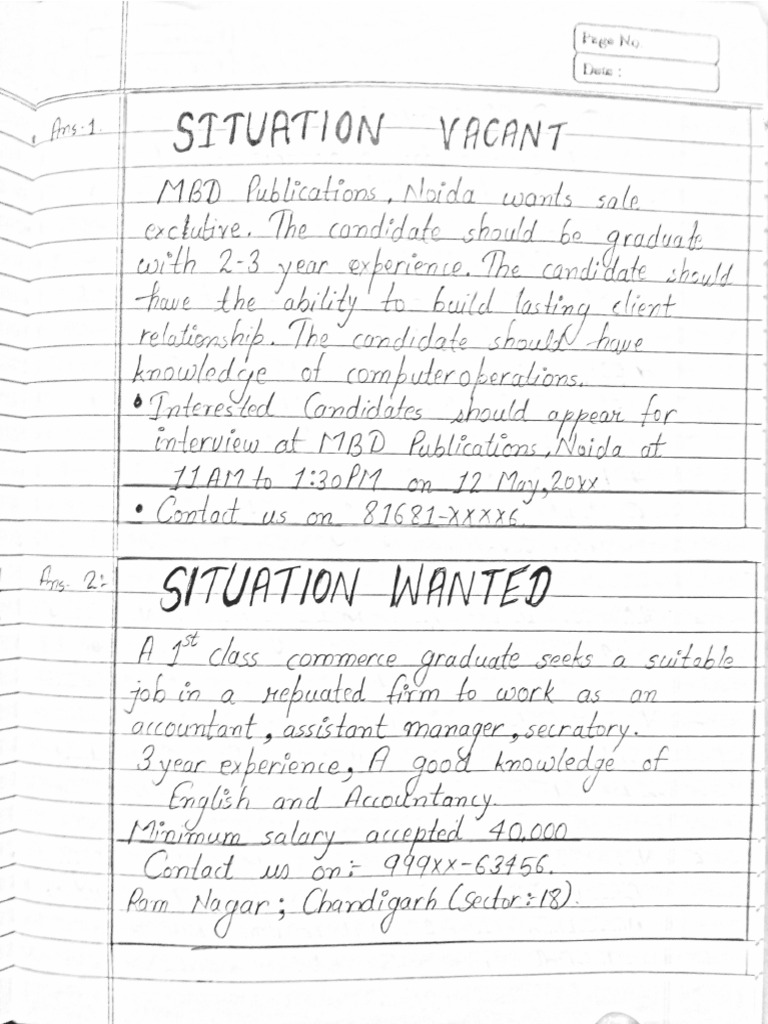 Page No.
Date :
Ans-1.
SITUATION VACANT
MBD Publications, Noida wants sale
exclutive. The candidate should be graduate
with 2-3 year experience. The candidate should
have the ability to build lasting client
relationship. The candidate should have
knowledge of computer operations.
• Interested Candidates should appear for
interview at MBD Publications, Noida at
11 AM to 1:30 PM on 12 May, 20xx
• Contact us on 81681-XXXX6.
Ans. 2:-
SITUATION WANTED
A 1st class commerce graduate seeks a suitable
job in a repuated firm to work as an
accountant, assistant manager, secratory.
3 year experience, A good knowledge of
English and Accountancy.
Minimum salary accepted 40,000
Contact us on:- 999xx-63456.
Ram Nagar ; Chandigarh (Sector:-18).